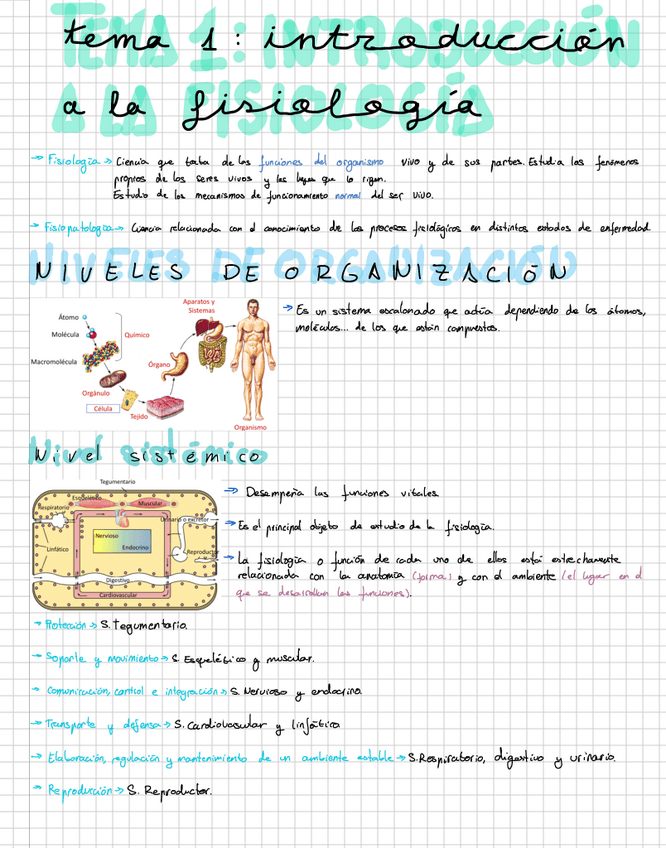 tema 1: introducción
TEMA 1: INTRODUCCIÓN
a la fisiología
A LA FISIOLOGÍA
→ Fisiología → Ciencia que trata de las funciones del organismo vivo y de sus partes. Estudia los fenómenos
propios de los seres vivos y las leyes que lo rigen.
Estudio de los mecanismos de funcionamiento normal del ser vivo.
→ Fisiopatología → Ciencia relacionada con el conocimiento de los procesos fisiológicos en distintos estados de enfermedad
NIVELES DE ORGANIZACIÓN
Átomo
Molécula
Químico
Macromolécula
Orgánulo
Célula
Tejido
Órgano
Aparatos y
Sistemas
Organismo
→ Es un sistema escalonado que actúa dependiendo de los átomos,
moléculas... de los que están compuestos.
Nivel sistémico
Tegumentario
Esquelético
Muscular
Respiratorio
Urinario o excretor
Nervioso
Endocrino
Linfático
Reproductor
Digestivo
Cardiovascular
→ Desempeña las funciones vitales
→ Es el principal objeto de estudio de la fisiología.
→ La fisiología o función de cada uno de ellos está estrechamente
relacionada con la anatomía (forma) y con el ambiente (el lugar en el
que se desarrollan las funciones).
→ Protección → S. Tegumentario.
→ Soporte y movimiento → S. Esquelético y muscular.
→ Comunicación, control e integración → S. Nervioso y endocrino.
→ Transporte y defensa → S. Cardiovascular y linfático
→ Elaboración, regulación y mantenimiento de un ambiente estable → S. Respiratorio, digestivo y urinario.
→ Reproducción → S. Reproductor.